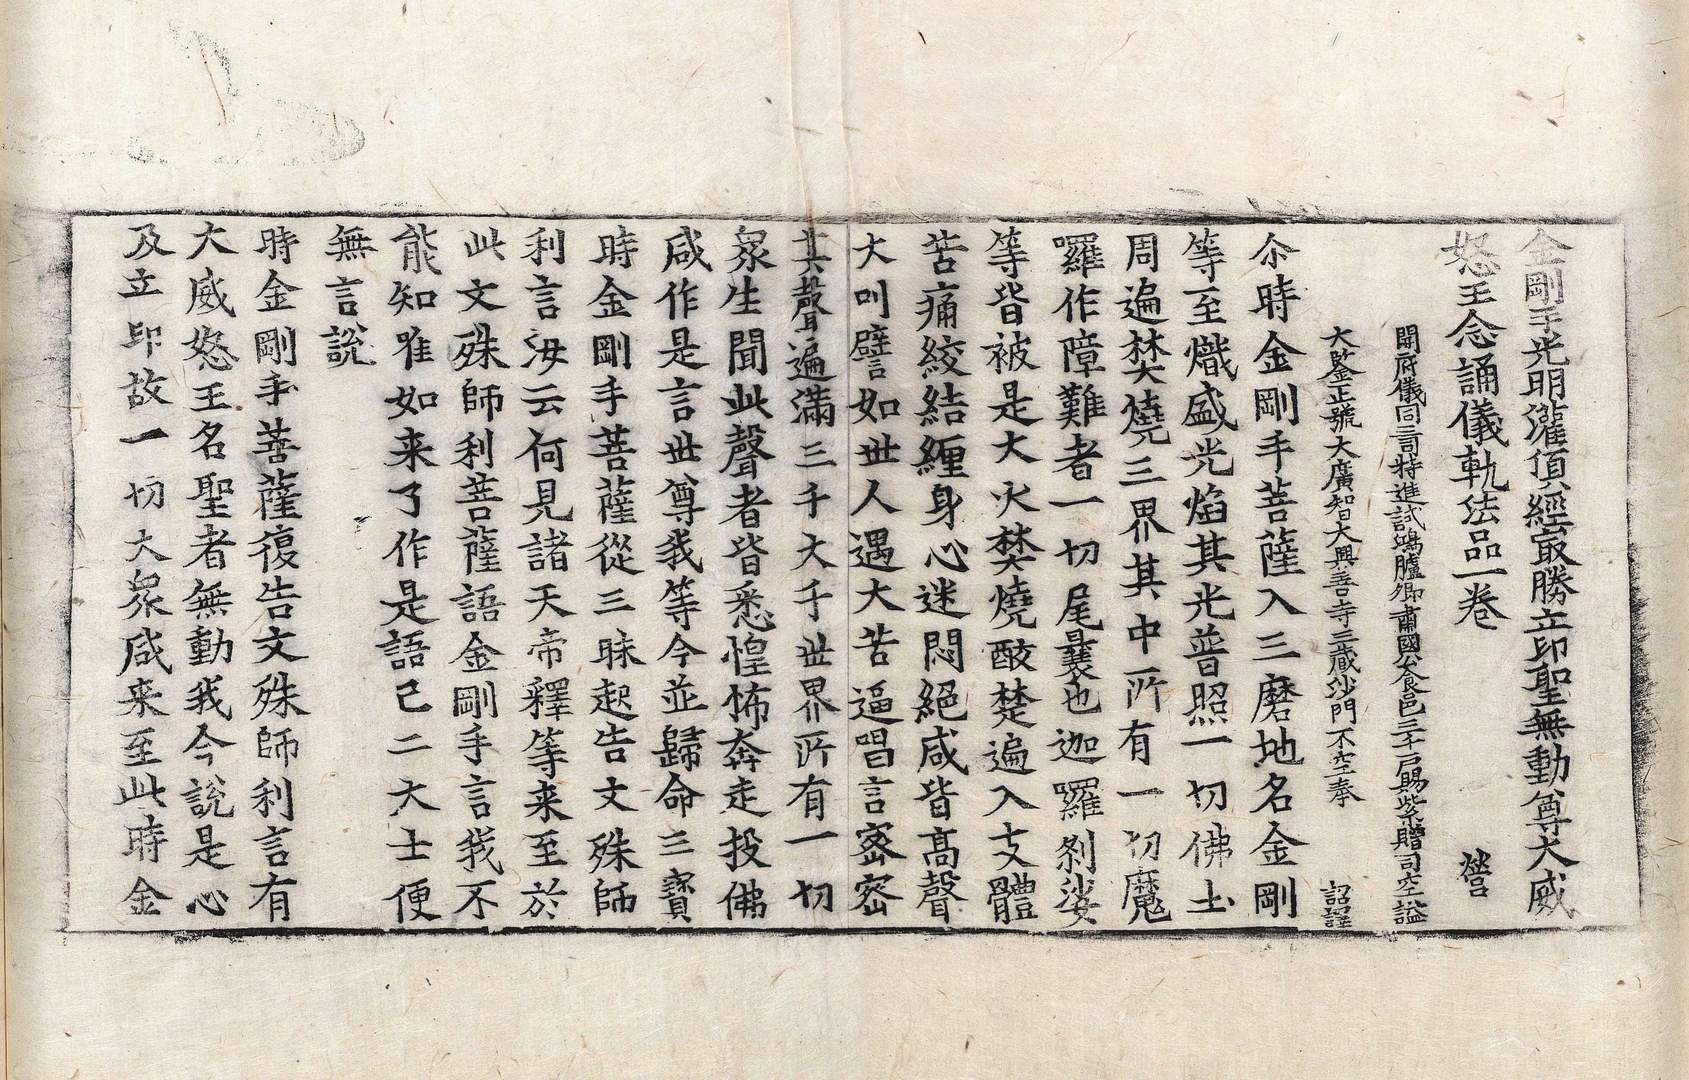 金剛手光明灌頂經㝡勝立印聖無動尊大威
怒王念誦儀軌法品一卷 營
開府儀同三司特進試鴻臚卿肅國公食邑三千戶賜紫贈司空謚
大鍳正號大廣智大興善寺三藏沙門不空奉 詔譯
尒時金剛手菩薩入三磨地名金剛
等至熾盛光焰其光普照一切佛土
周遍焚燒三界其中所有一切魔
囉作障難者一切尾曩也迦囉剎娑
等皆被是大火焚燒酸楚遍入支體
苦痛絞結纏身心迷悶絕咸皆高聲
大叫譬如世人遇大苦逼唱言密密
其聲遍滿三千大千世界所有一切
衆生聞此聲者皆悉惶怖奔走投佛
咸作是言世尊我等今並歸命三寳
時金剛手菩薩從三昧起告文殊師
利言汝云何見諸天帝釋等来至於
此文殊師利菩薩語金剛手言我不
能知唯如来了作是語已二大士便
無言說
時金剛手菩薩復告文殊師利言有
大威怒王名聖者無動我今說是心
及立印故一切大衆咸来至此時金